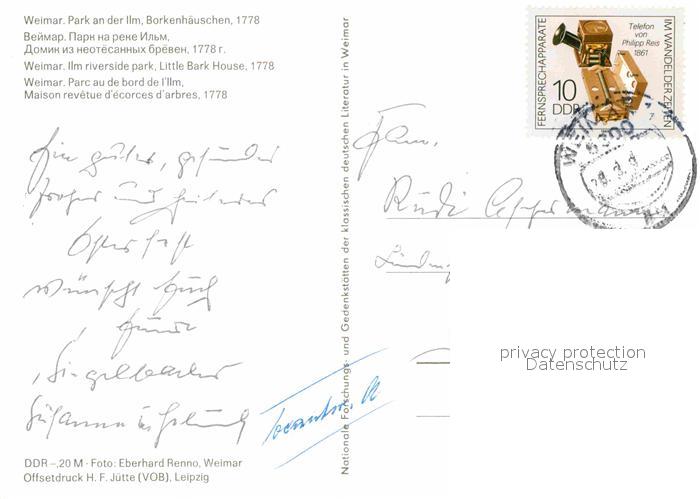 Weimar. Park an der Ilm, Borkenhäuschen, 1778
Веймар. Парк на реке Ильм,
Домик из неотёсанных брёвен, 1778 г.
Weimar. Ilm riverside park, Little Bark House, 1778
Weimar. Parc au de bord de l'Ilm,
Maison revêtue d'écorces d'arbres, 1778
Ein gutes, gesundes
frohes und heiteres
Osterfest
wünscht Euch
Susanna
DDR –,20 M · Foto: Eberhard Renno, Weimar
Offsetdruck H. F. Jütte (VOB), Leipzig
Nationale Forschungs- und Gedenkstätten der klassischen deutschen Literatur in Weimar
FERNSPRECHAPPARATE
IM WANDEL DER ZEITEN
Telefon
von
Philipp Reis
1861
10
DDR
WEIMAR
5300
Fam.
Rudi
privacy protection
Datenschutz